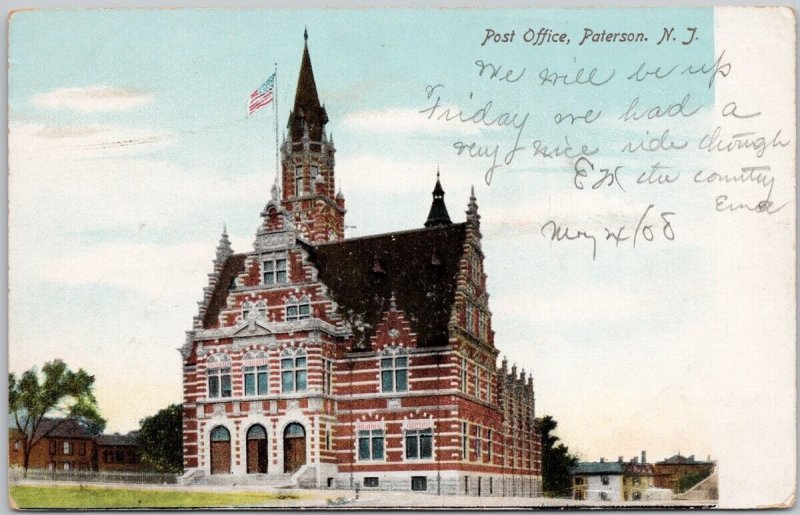 Post Office, Paterson. N. J.
We will be up
Friday we had a
very nice ride though
the country
May 24/08